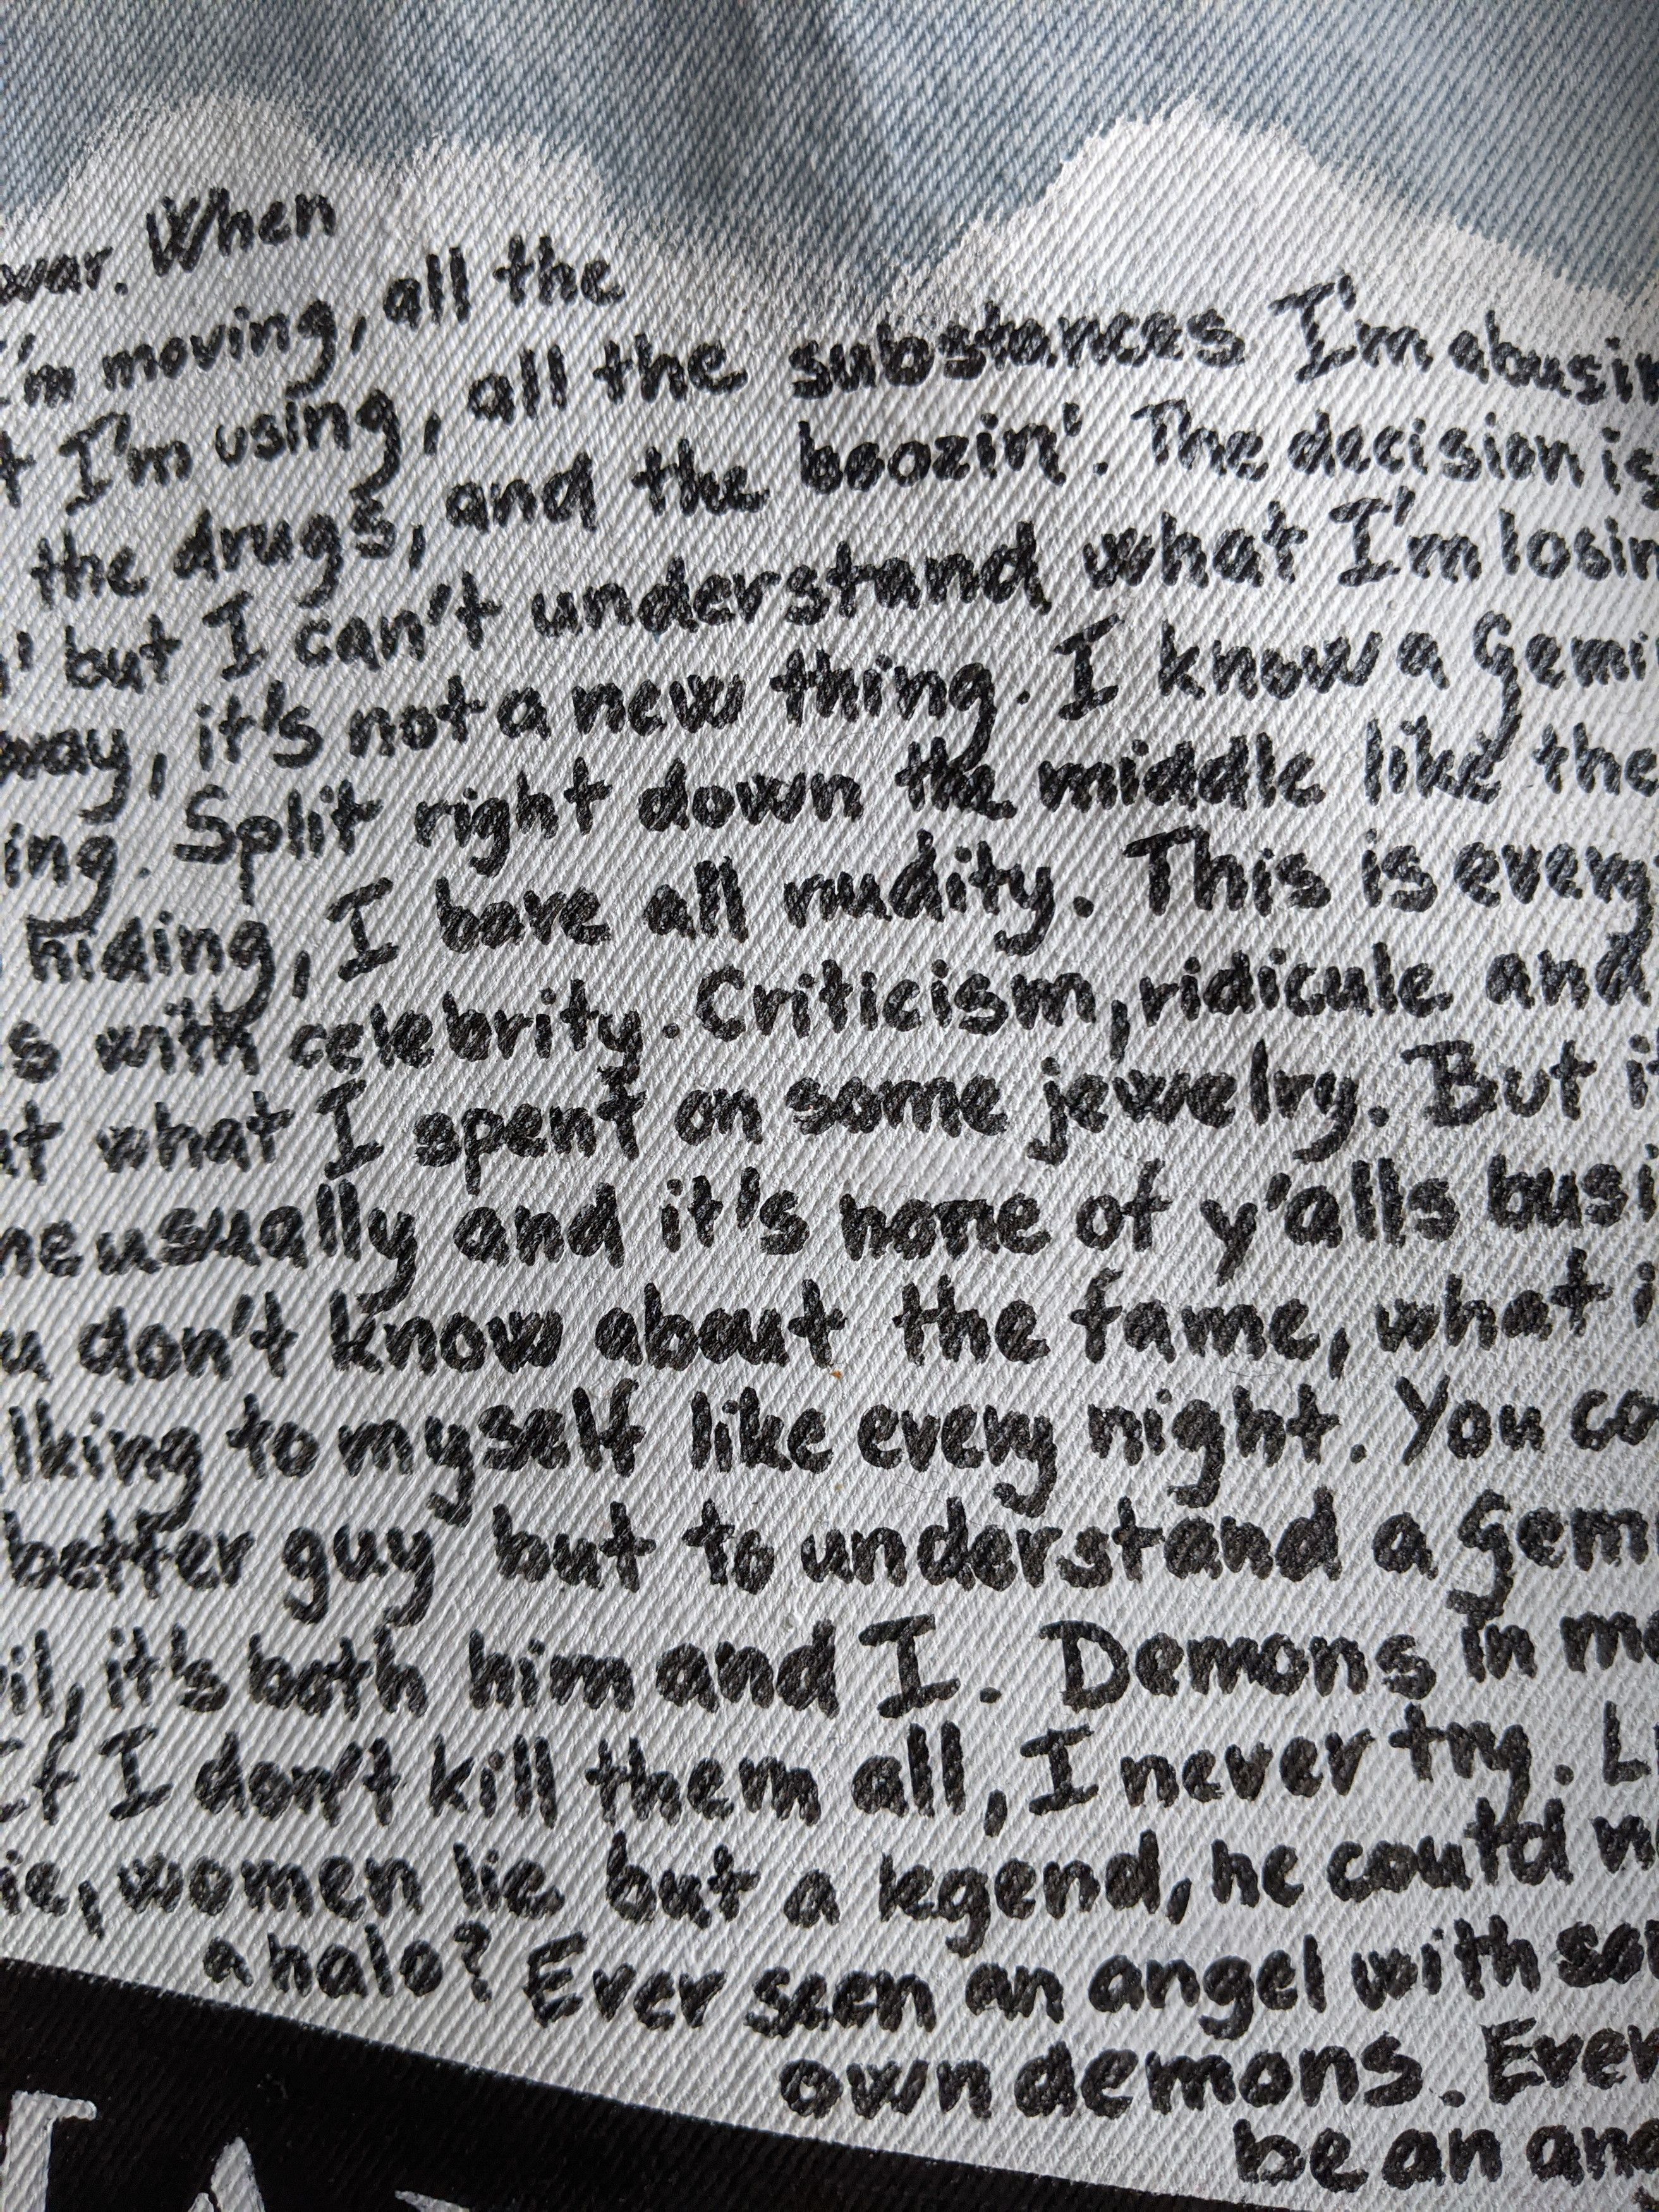 war. When
I'm moving, all the
I'm using, all the substances I'm abusin
the drugs, and the boozin'. The decision is
but I can't understand what I'm losin
way, it's not a new thing. I know a Gemi
ing. Split right down the middle like the
hiding, I bare all nudity. This is every
s with celebrity. Criticism, ridicule and
at what I spent on some jewelry. But it
me usually and it's none of y'alls busi
u don't know about the fame, what i
lking to myself like every night. You co
better guy but to understand a Gem
il, it's both him and I. Demons in me
If I don't kill them all, I never try. L
ie, women lie but a legend, he could n
a halo? Ever seen an angel with so
own demons. Ever
be an ang